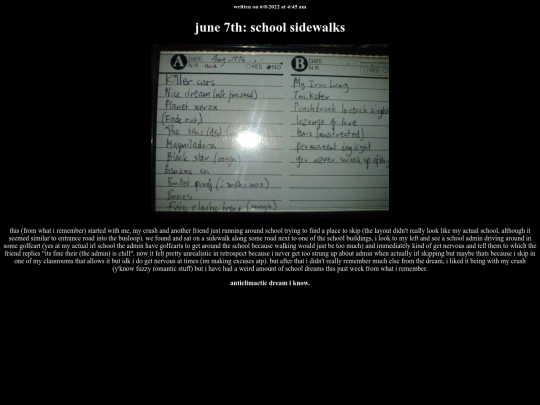 written on 6/8/2022 at 4:45 am
june 7th: school sidewalks
A DATE Aug. 1994
N.R. YES NO
Killer cars
Nice dream (not finished)
Planet xerox
(Fade out)
The
Magnilodone
Black star (rough)
banana co.
Bullet proof (
Bones
Fake plastic trees (rough)
B DATE
N.R. YES
My Iron Lung
Trickster
Punchdrunk lovesick singalong
lozenge of love
lewis (mistreated)
permanent daylight
you never wash up after
this (from what i remember) started with me, my crush and another friend just running around school trying to find a place to skip (the layout didn't really look like my actual school, although it
seemed similar to entrance road into the busloop). we found and sat on a sidewalk along some road next to one of the school buildings, i look to my left and see a school admin driving around in
some golfcart (yes at my actual irl school the admin have golfcarts to get around the school because walking would just be too much) and immediately kind of get nervous and tell them to which the
friend replies "its fine their (the admin) is chill". now it felt pretty unrealistic in retrospect because i never get too strung up about admin when actually irl skipping but maybe thats because i skip in
one of my classrooms that allows it but idk i do get nervous at times (im making excuses atp). but after that i didn't really remember much else from the dream, i liked it being with my crush
(y'know fuzzy romantic stuff) but i have had a weird amount of school dreams this past week from what i remember.
anticlimactic dream i know.